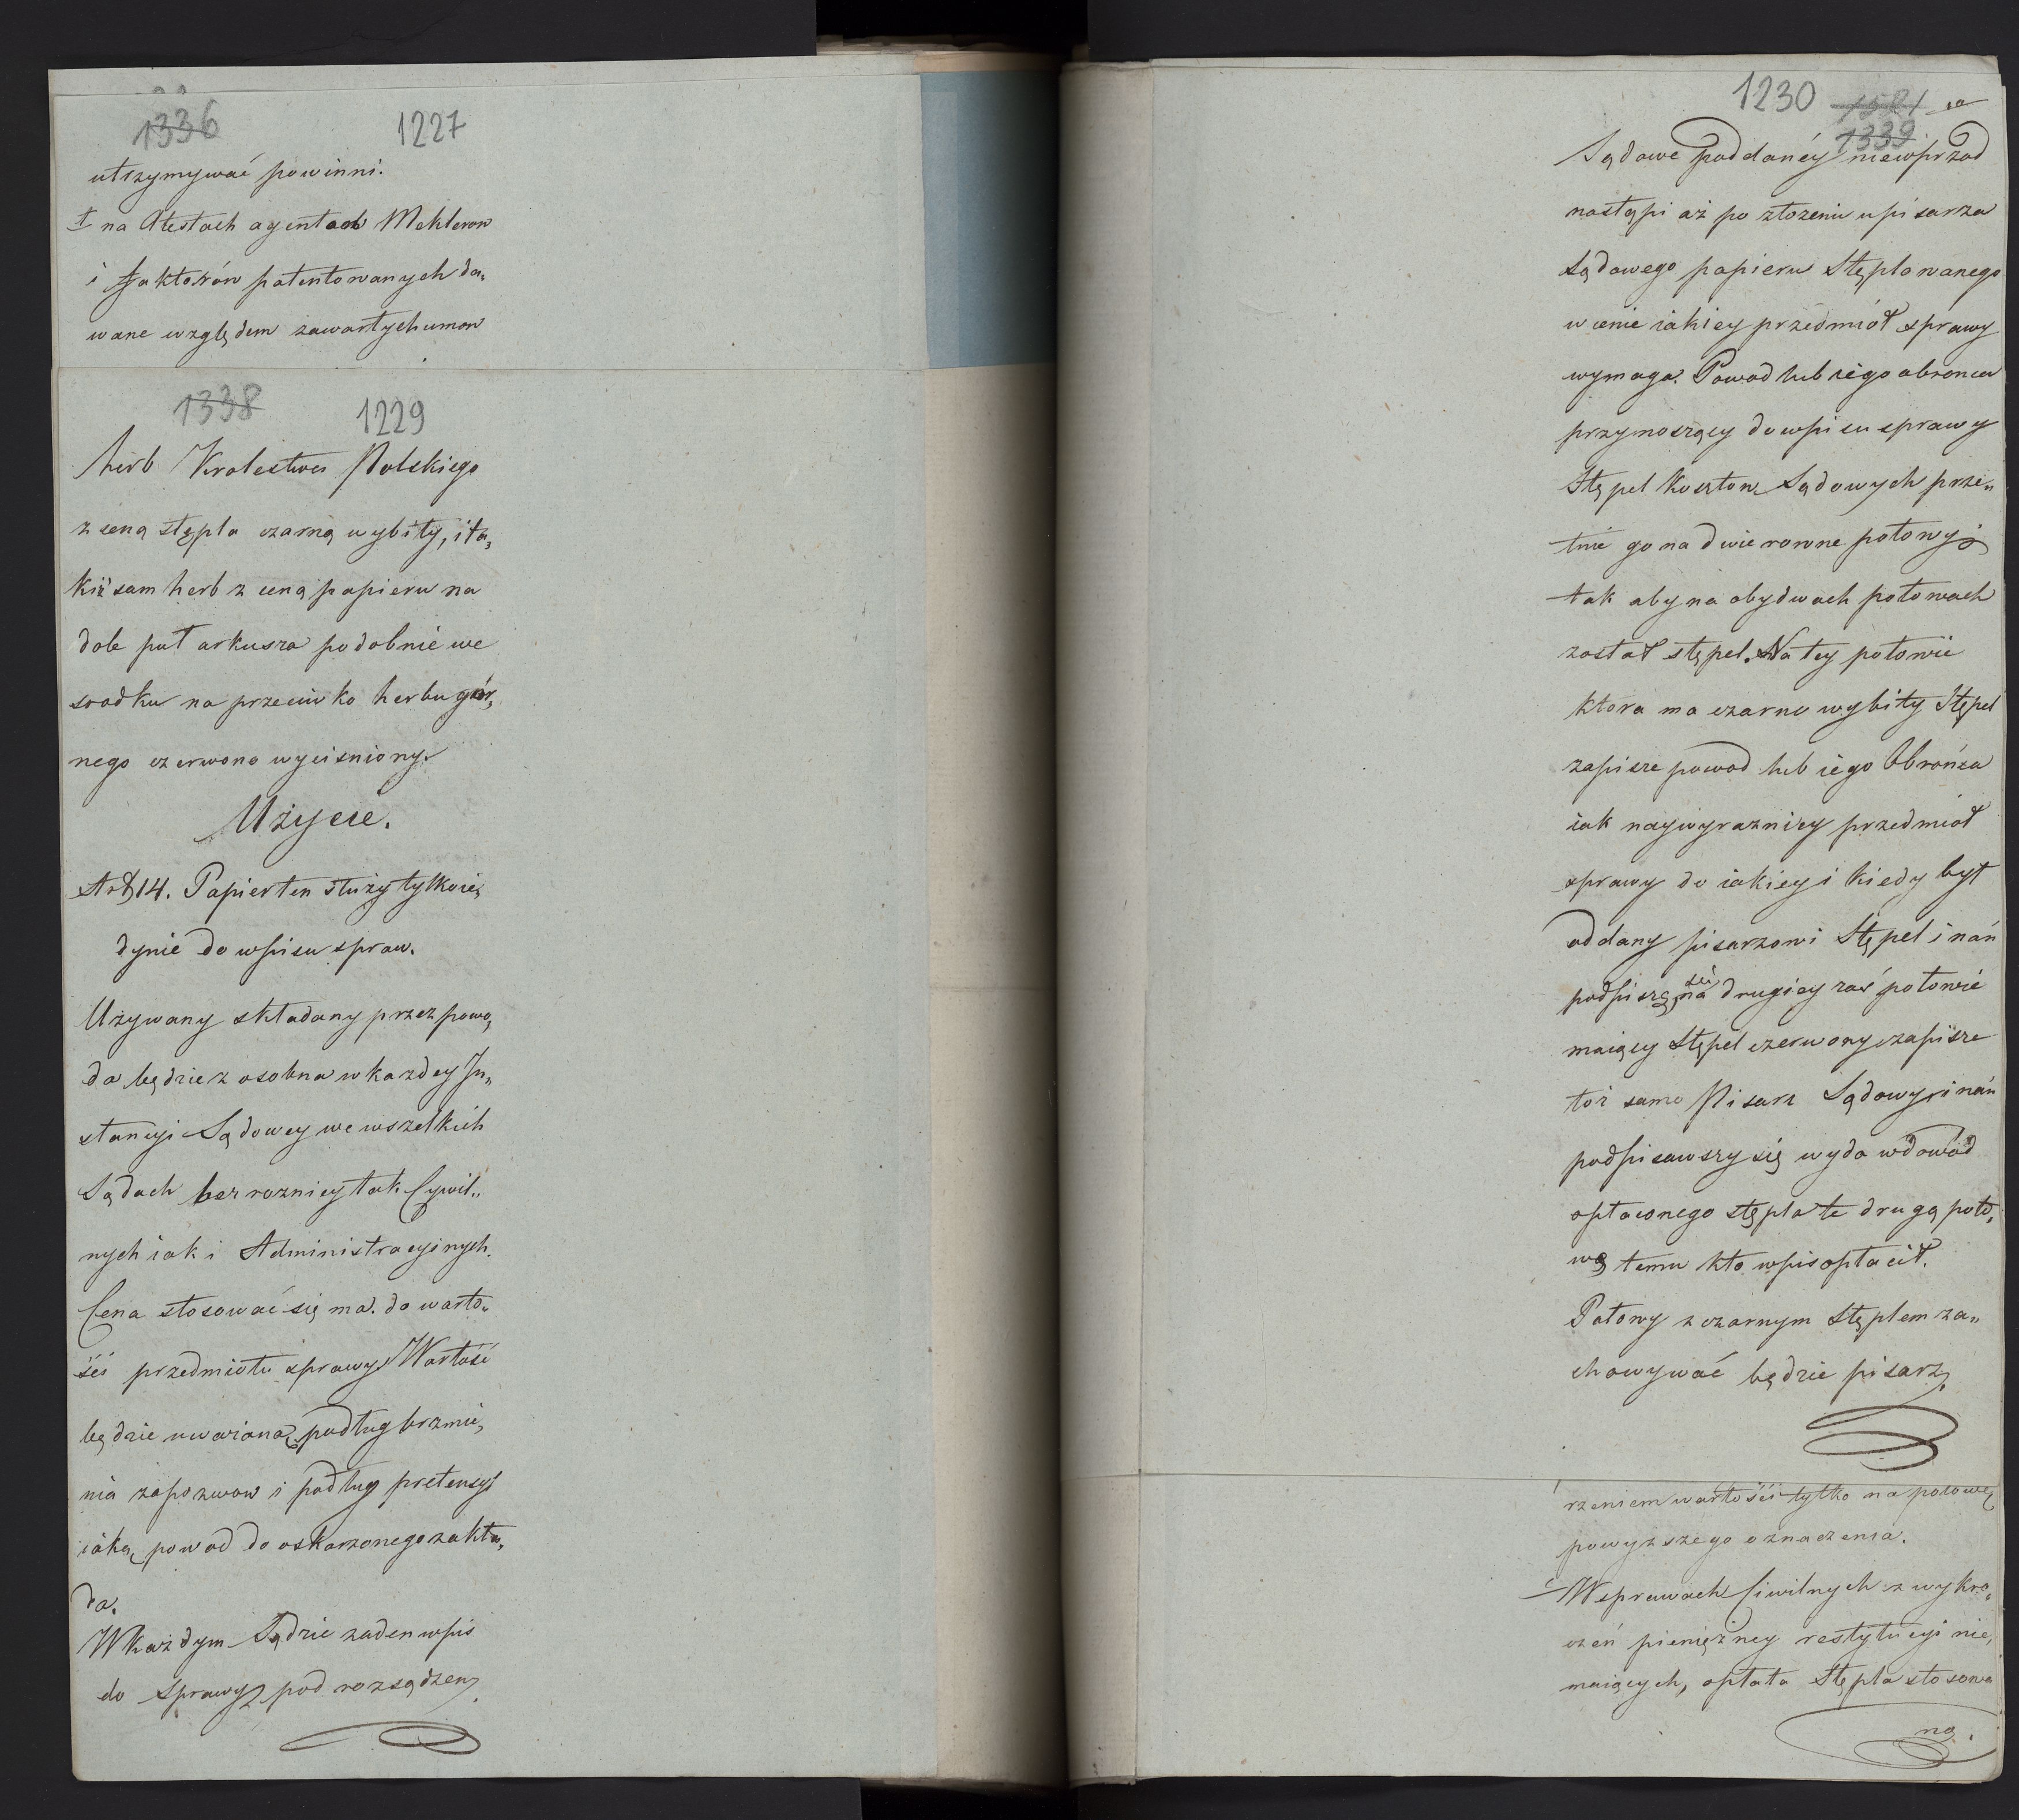 1336 1227
utrzymywać powinni.
‡ na Atestach agentach Meklerow
i Faktorów patentowanych da„
wane względem zawartych umow
1338 1229
herb Krolestwa Polskiego
z ceną stępla czarną wybity, i ta„
kiż sam herb z ceną papieru na
dole puł arkusza podobnie we
srodku na przeciwko herbu gór„
nego czerwono wycisniony.
Użycie.
Art 14. Papier ten służy tylko ie„
dynie do wpisu spraw.
Używany składany przez powo„
da będzie z osobna w kazdey In„
stancyi Sądowey we wszelkich
Sądach bez roznicy tak Cywil„
nych iak i Administracyinych.
Cena stosować się ma do warto„
ści przedmiotu sprawy. Wartość
będzie uważana podług brzmie„
nia zapozwow i podług pretensyi
iaką powod do oskarzonego zakła„
da.
W każdym Sądzie zaden wpis
do sprawy pod rozsądzen„
1230
1339
Sądowe poddanéy niewprzod
nastąpi aż po złozeniu u pisarza
Sądowego papieru Stęplowanego
w cenie iakiey przedmiót sprawy
wymaga. Powod lub iego obronca
przynoszący do wpisu sprawy
Stępel kosztow Sądowych prze„
tnie go na dwie rowne połowy
tak aby na obydwoch połowach
został stępel. Na tey połowie
ktora ma czarno wybity Stępel
zapisze powod lub iego Obrońca
iak naywyrazniey przedmiot
sprawy do iakiey i kiedy był
oddany pisarzowi Stępel i nań
podpisze się na drugiey zaś połowie
maiącey Stępel czerwony zapisze
toż samo Pisarz Sądowy i nań
podpisawszy się wyda w dowód
opłaconego stępla te drugą poło„
wę temu kto wpis opłacił.
Połowy z czarnym Stęplem za„
chowywać będzie pisarz,
rzeniem wartości tylko na połowę
powyzszego oznaczenia.
W sprawach Ciwilnych z wykro„
czeń pienięzney restytucyi nie„
maiących, opłata Stępla stosowa
na.